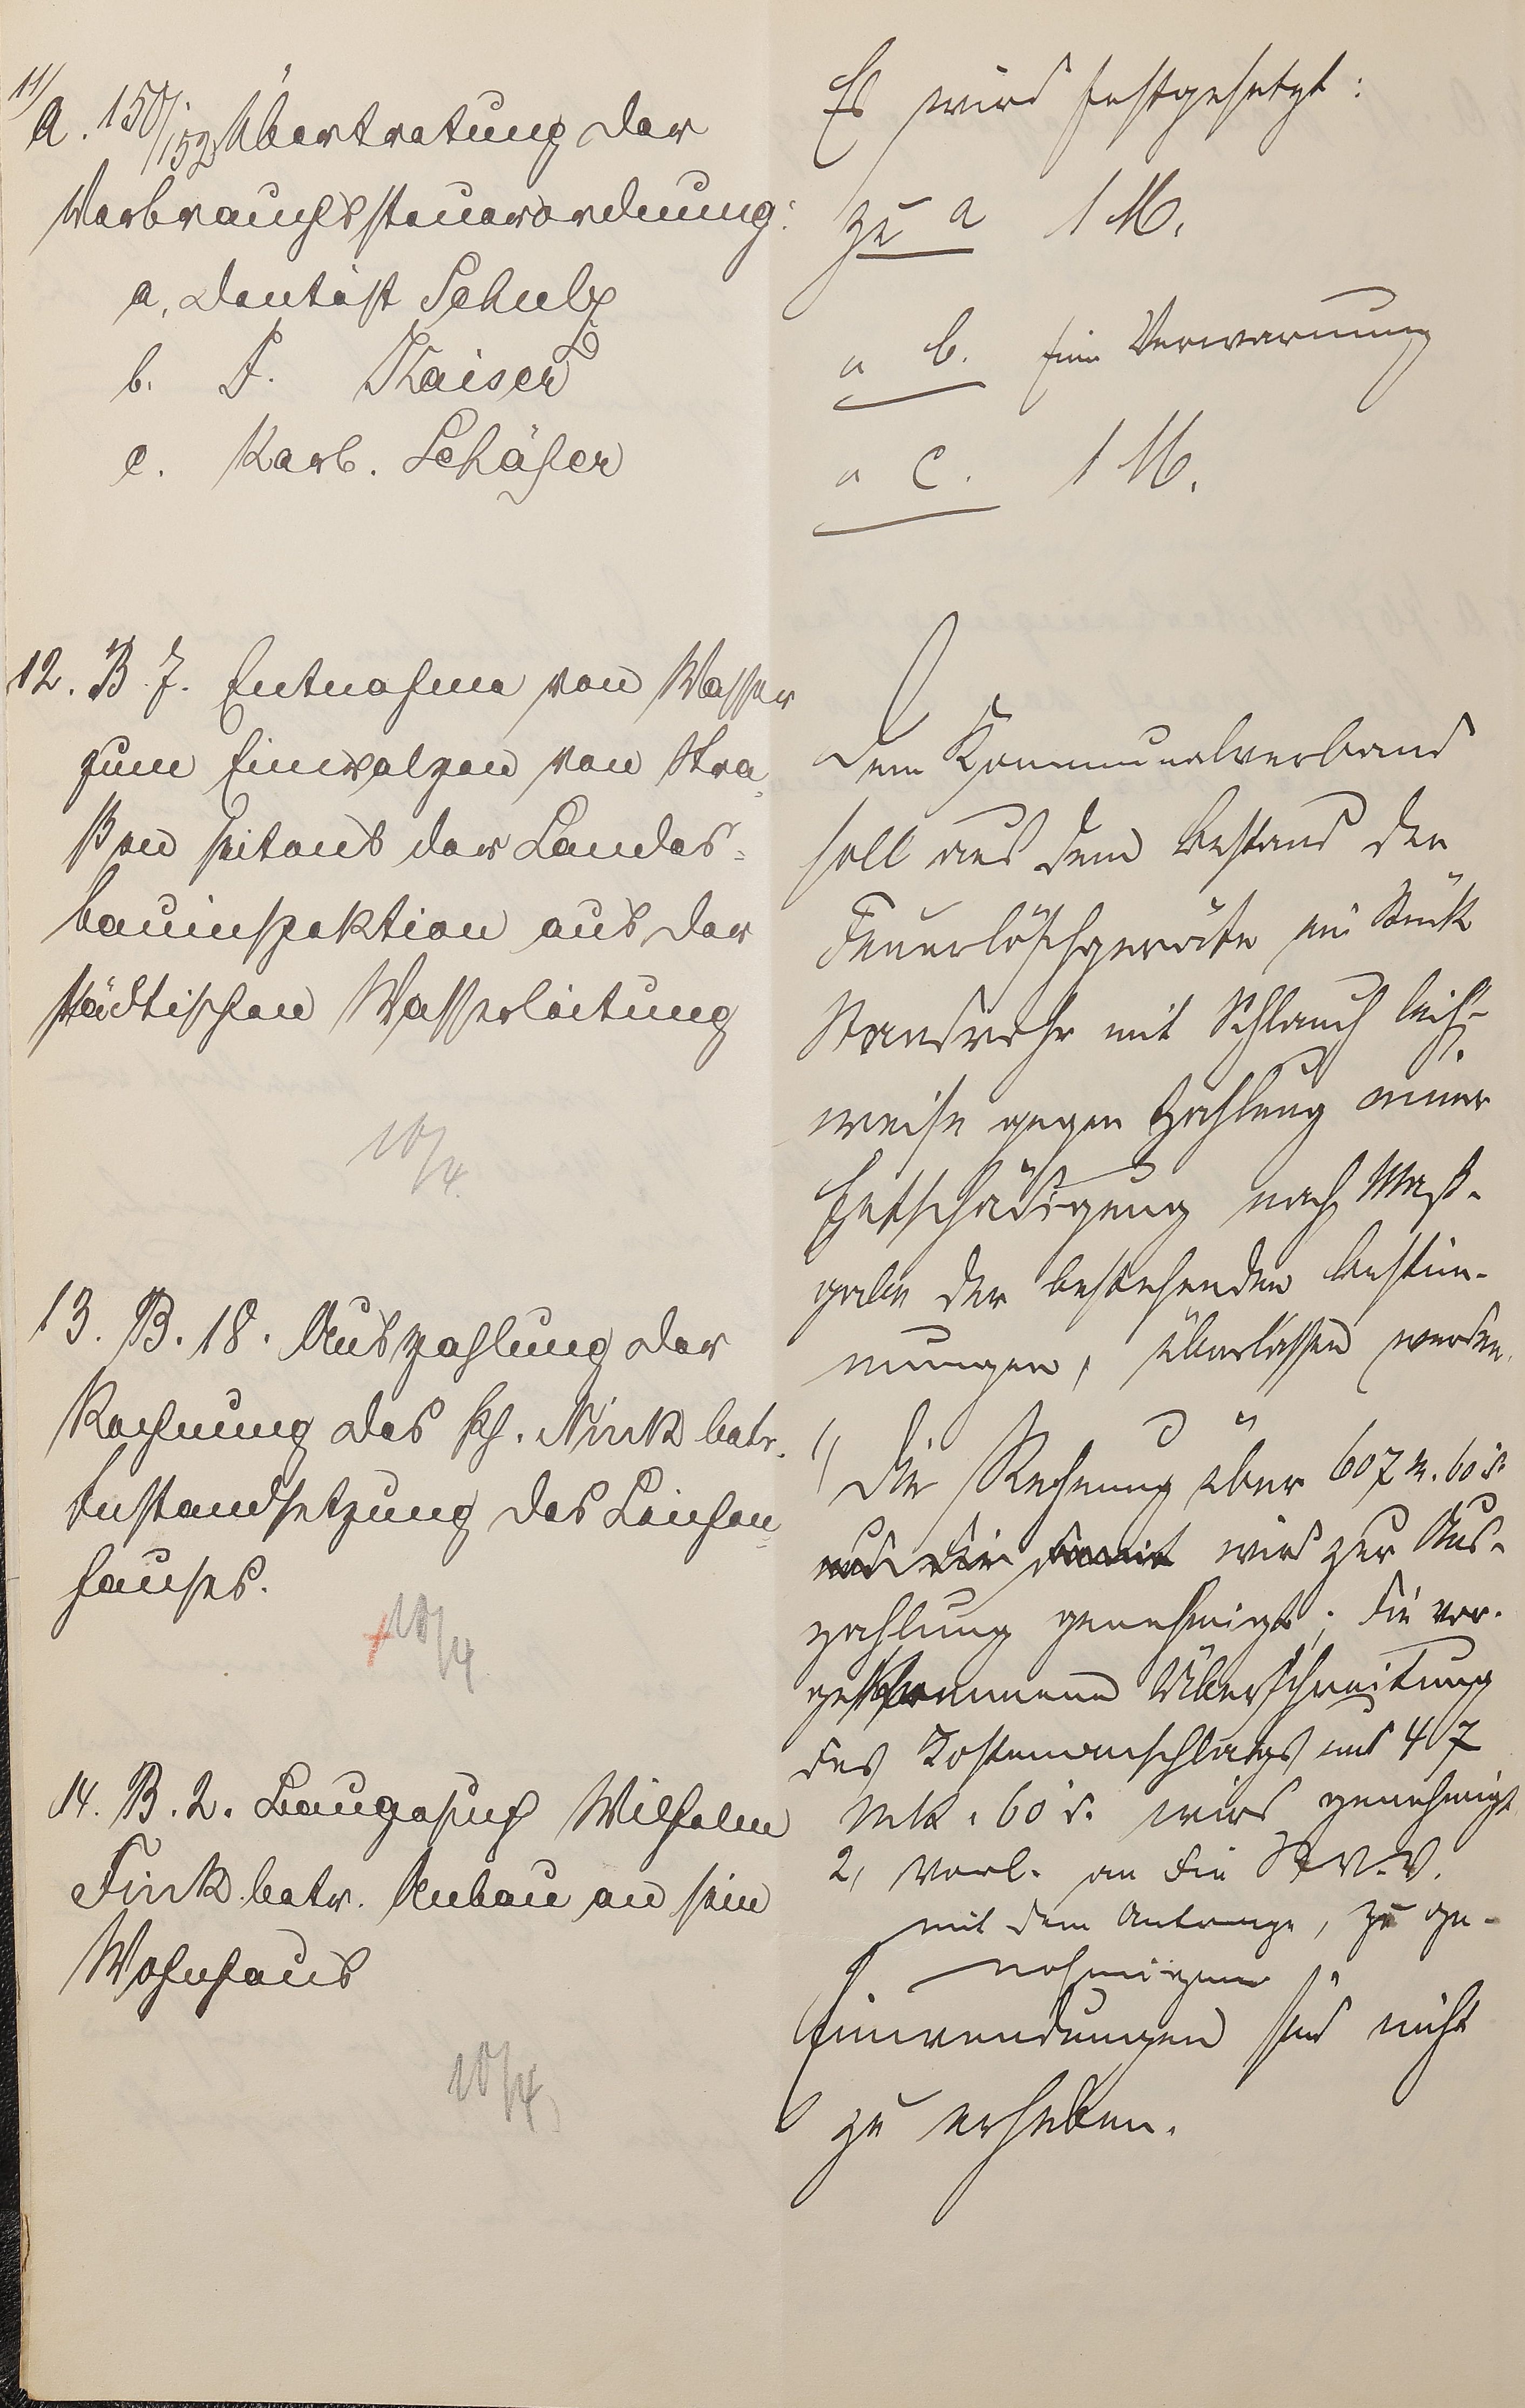 11/
A. 150/152 Übertretung der
Verbrauchssteuerordnung:
a, Dentist Schulz
b. F. Kaiser
c. Karb. Schäfer
Es wird festgesetzt:
zu a 1 M.
" b. eine Verwarnung
" c. 1 M.
12. B 7. Entnahme von Wasser
zum Einwalzen von Stra=
ßen seitens der Landes=
bauinspektion aus der
städtischen Wasserleitung
10/4.
Dem Kommunalverband
soll aus dem Bestand der
Feuerlöschgeräte ein Stück
Standrohr mit Schlauch leih-
weise gegen Zahlung einer
Entschädigung nach Maß-
gabe der bestehenden Bestim-
mungen, überlassen werden.
13. B. 18. Auszahlung der
Rechnung des Ph. Nink betr.
Instandsetzung des Leichen=
hauses.
+10/4
1, Die Rechnung über 607 M. 60 d.
und die damit wird zur Aus-
zahlung genehmigt; die vor-
gekommene Überschreitung
des Kostenanschlags mit 47
Mk. 60 d. wird genehmigt
2, Vorl. an die St.V.V.
mit dem Antrage, zu ge-
nehmigen
14. B. 2. Baugesuch Wilhelm
Fink betr. Anbau an sein
Wohnhaus
10/4
Einwendungen sind nicht
zu erheben.